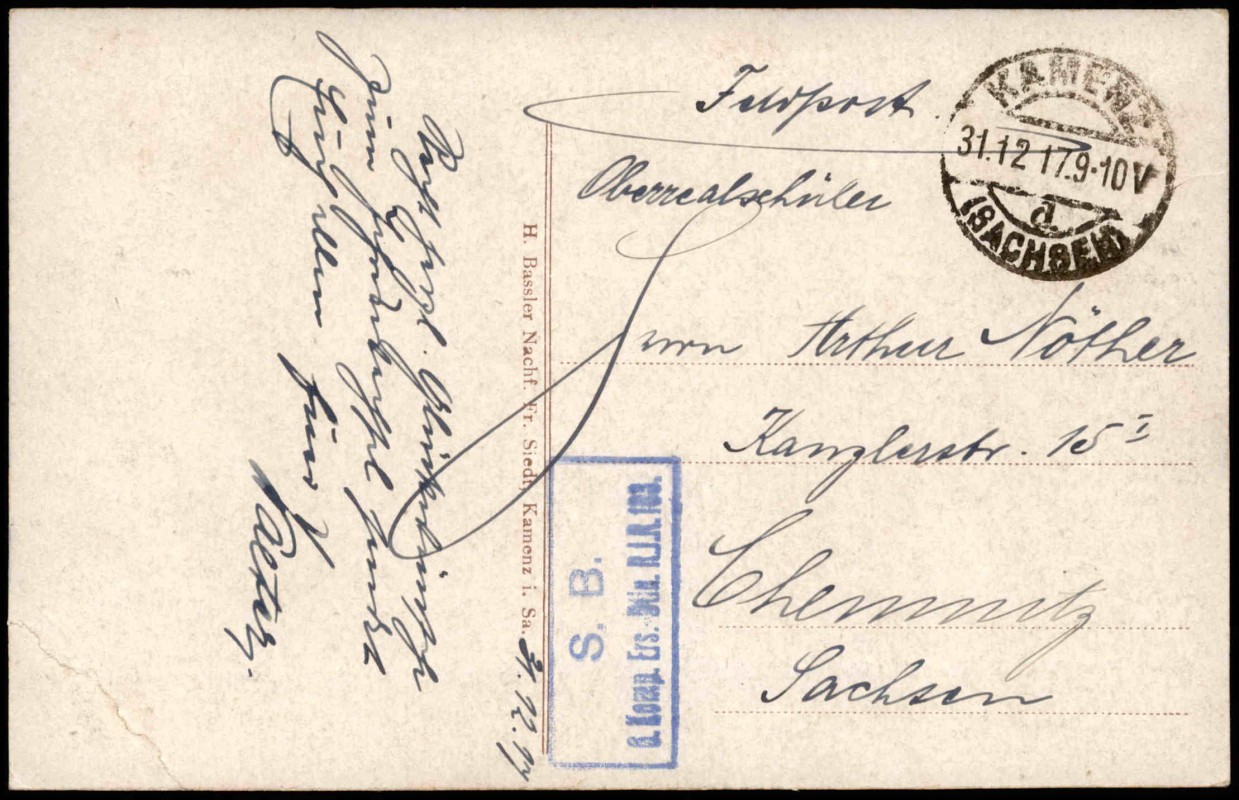 Feldpost.
KAMENZ
31.12 17.9-10V
d
(SACHSEN)
Oberrealschüler
Arthur Nöther
Kanzlerstr. 15 I
Chemnitz
Sachsen
H. Bassler Nachf. Fr. Siedt, Kamenz i. Sa.
31.12.17
S. B.
Komp. Ers.-Btln. R.J.R. 103.
Recht herzl. Glückwünsche
zum Jahreswechsel sendet
Euch allen Euer
Walter.